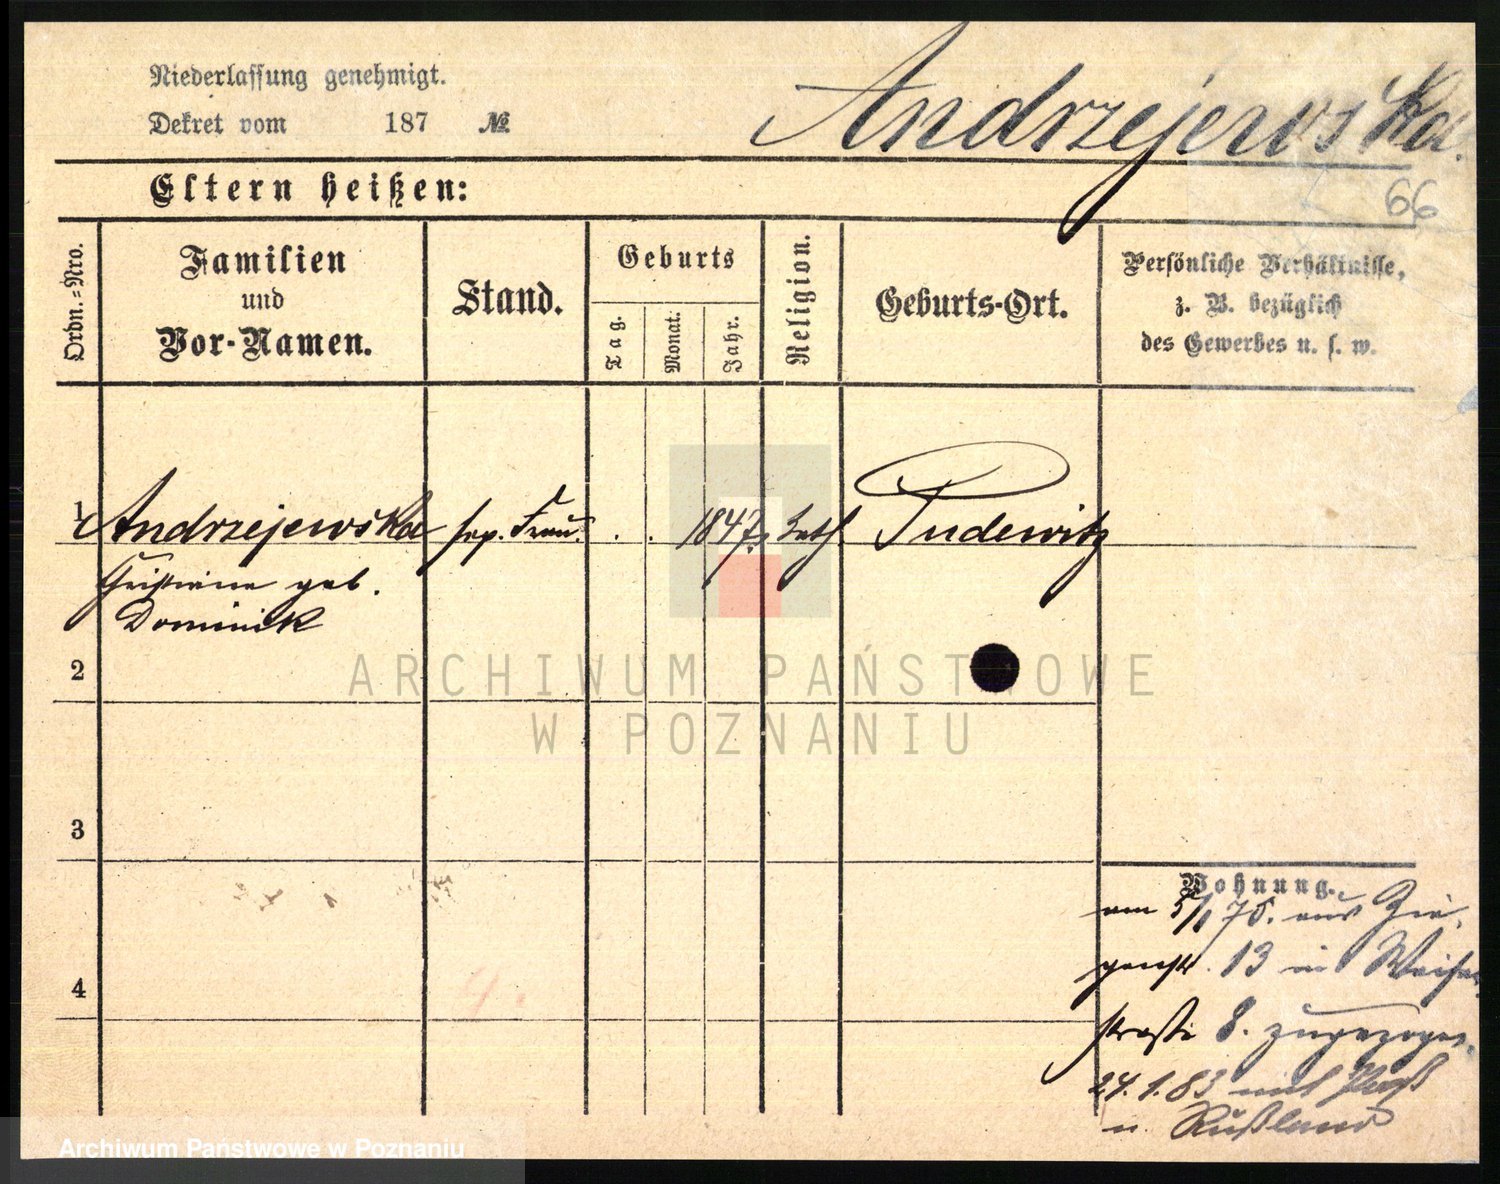 Niederlassung genehmigt.
Dekret vom 187 №
Andrzejewska.
Eltern heißen:
66
Ordn.-Nro.
Familien
und
Vor-Namen.
Stand.
Geburts
Tag.
Monat.
Jahr.
Religion.
Geburts-Ort.
Persönliche Verhältnisse,
z. B. bezüglich
des Gewerbes u. s. w.
1 Andrzejewska sep. Frau. . . 1847. kath. Pudewitz
Christine geb.
Dominik
2
3
4
ARCHIWUM PAŃSTWOWE
W POZNANIU
Wohnung.
am 5/1 75. aus Zie-
genstr. 13 in Waisen-
straße 8. zugezogen.
24.1.83 mit Paß
n. Rußland
Archiwum Państwowe w Poznaniu